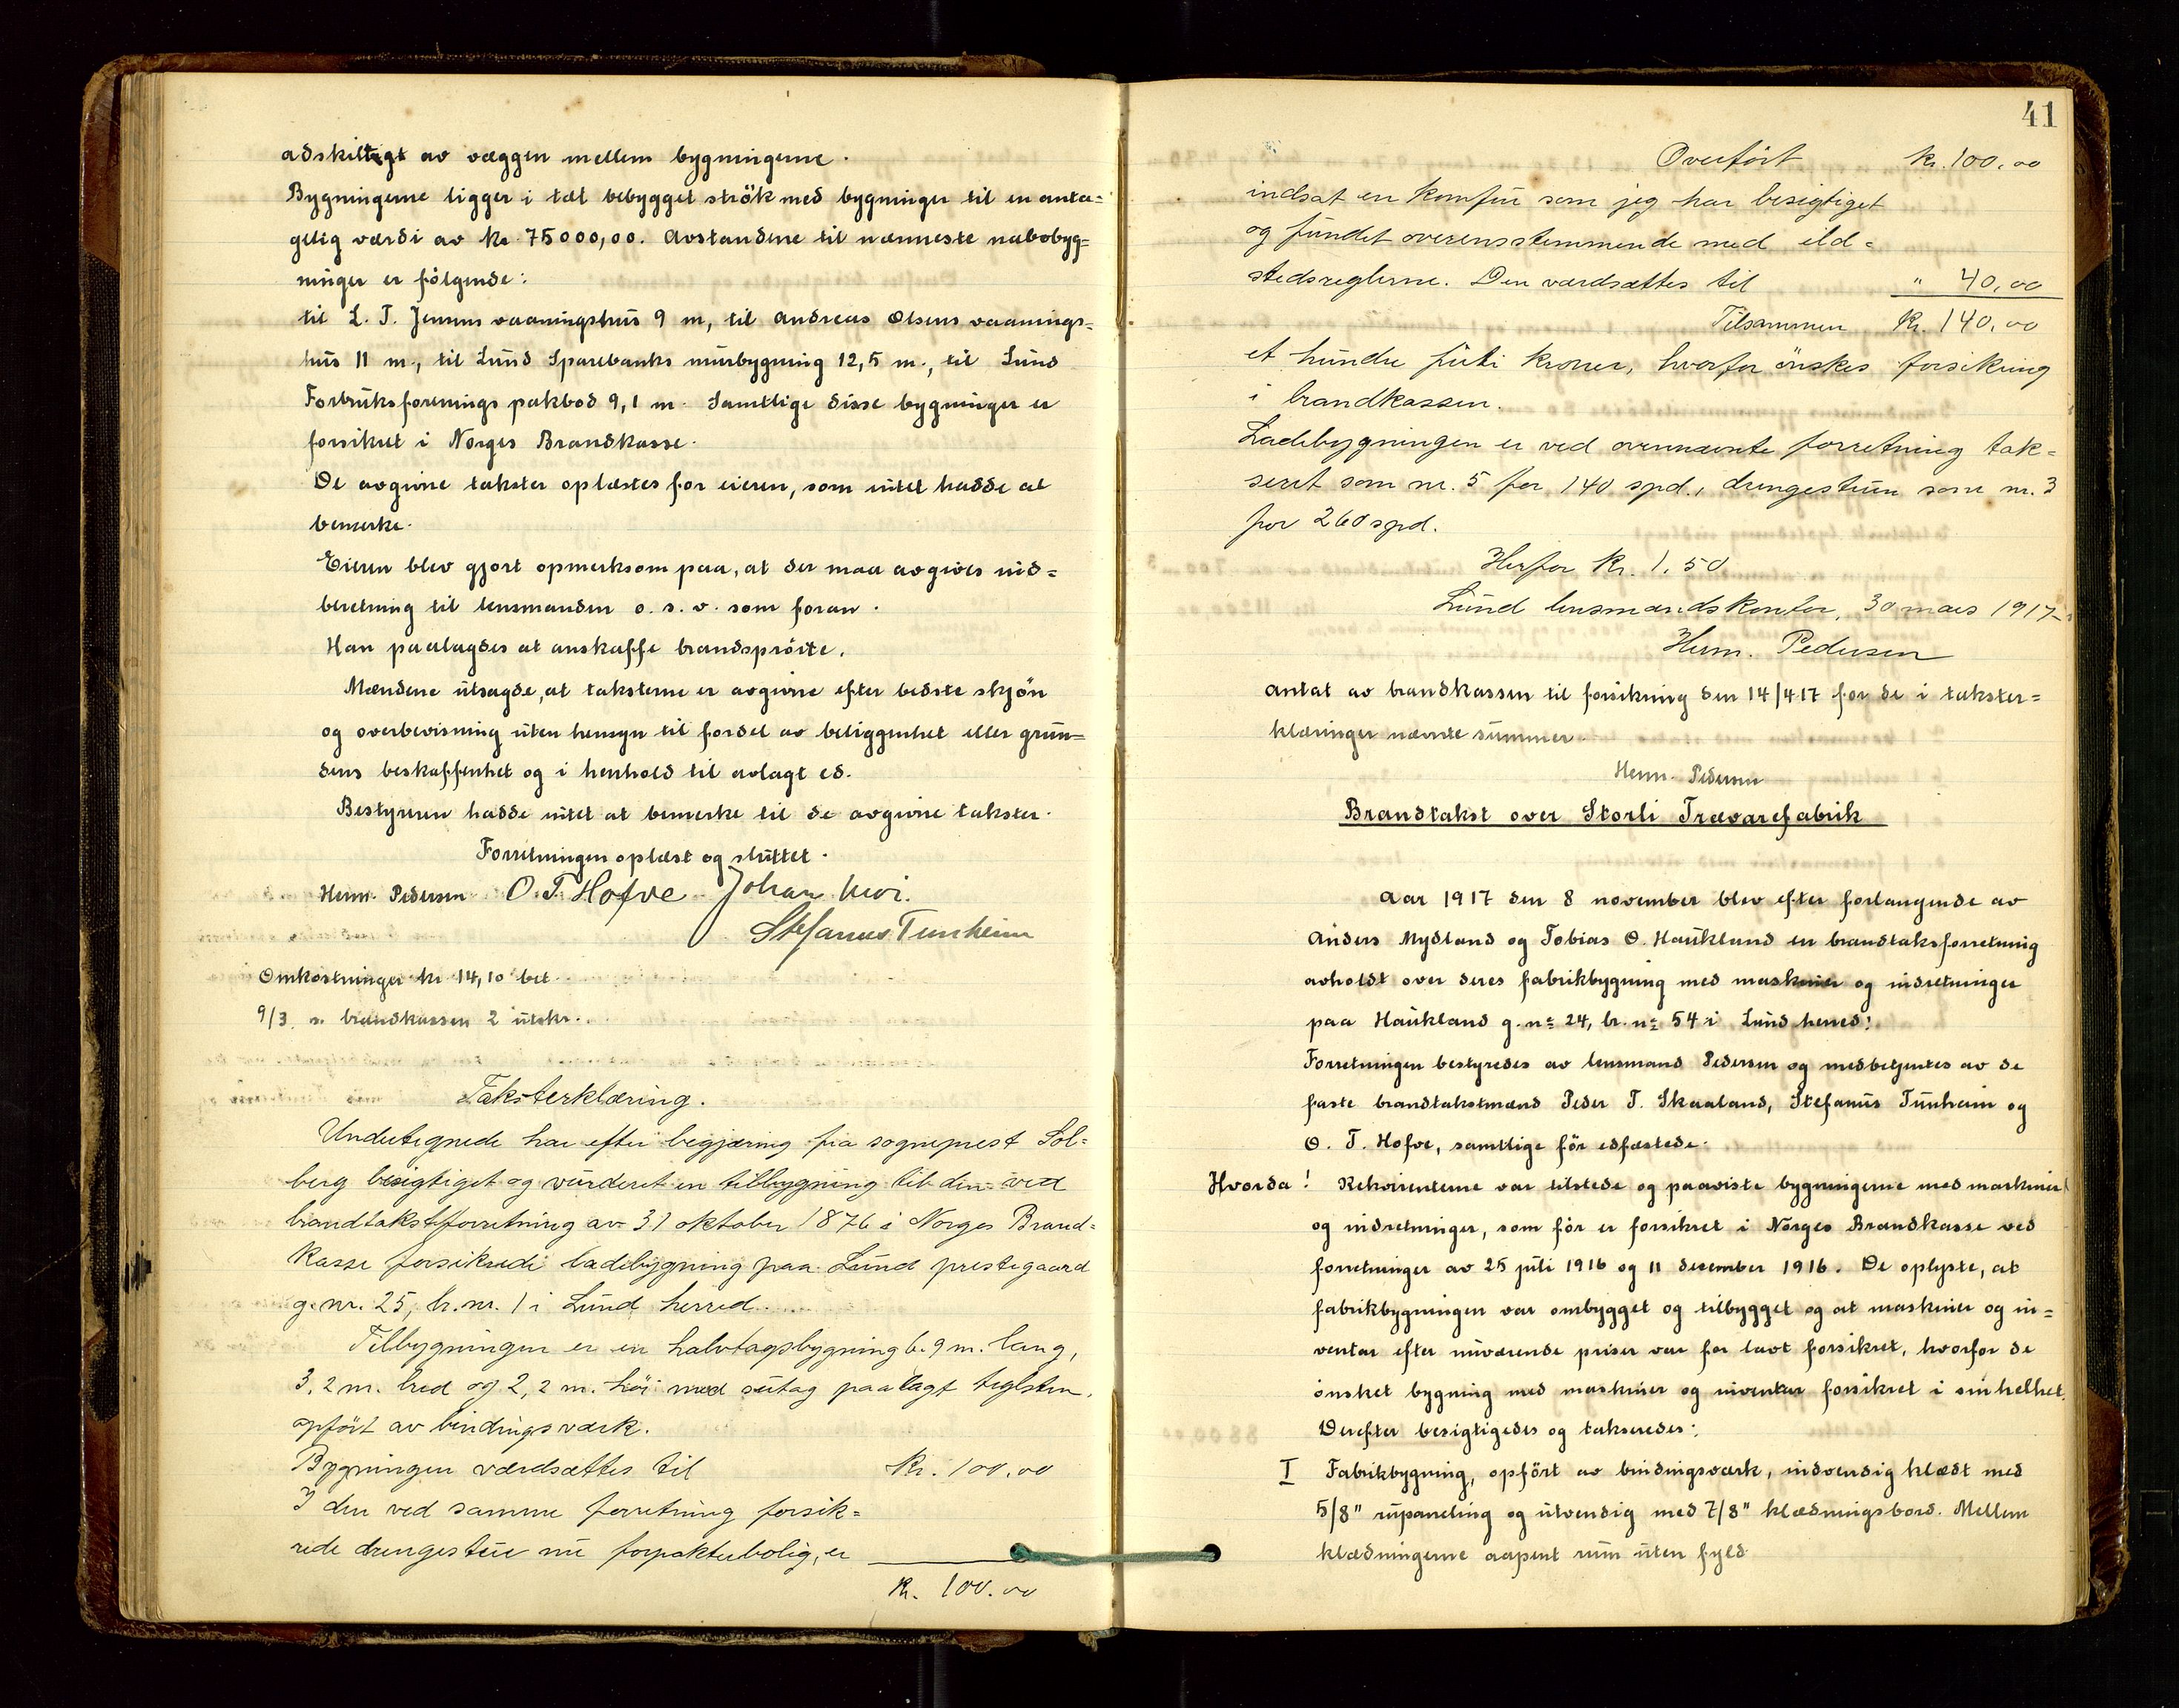 adskilt av væggen mellem bygningerne.
Bygningerne ligger i tæt bebygget strök med bygninger til en anta=
gelig værdi av kr. 75000,00. Avstandene til nærmeste nabobyg=
ninger er følgende:
til L. T. Jensens vaaningshus 9 m, til Andreas Olsens vaanings=
hus 11 m., til Lund Sparebanks murbygning 12,5 m., til Lund
Forbruksforenings pakbod 9,1 m. Samtlige disse bygninger er
forsikret i Norges Brandkasse.
De avgivne takster oplæstes for eieren, som intet hadde at
bemerke.
Eieren blev gjort opmerksom paa, at der maa avgives ind=
beretning til lensmanden o. s. v. som foran.
Han paalagdes at anskaffe brandsprøite.
Mændene utsagde, at taksterne er avgivne efter bedste skjøn
og overbevisning uten hensyn til fordel av beliggenhet eller grun=
dens beskaffenhet og i henhold til avlagt ed.
Bestyreren hadde intet at bemerke til de avgivne takster.
Forretningen oplæst og sluttet.
Herm. Pedersen O. T. Hofve Johan Moi.
Stefanus Tunheim
Omkostninger kr 14,10 bet.
9/3 s. brandkassen 2 utskr.
Taksterklæring.
Undertegnede har efter begjæring fra sogneprest Sol=
berg besigtiget og vurderet en tilbygning til den ved
brandtakstforretning av 31 oktober 1876 i Norges Brand=
kasse forsikrede ladebygning paa Lund prestegaard
g. nr. 25, br. nr. 1 i Lund herred.
Tilbygningen er en halvtagsbygning 6.9 m. lang,
3,2 m. bred og 2,2 m. høi med sutag paalagt teglsten,
opført av bindingsverk.
Bygningen værdsættes til Kr. 100.00
I den ved samme forretning forsik=
rede drengestue nu forpakterbolig, er
Kr. 100.00
41
Overført Kr. 100,00
indsat en komfur som jeg har besigtiget
og fundet overensstemmende med ild=
stedsreglerne. Den værdsættes til " 40,00
Tilsammen Kr. 140,00
et hundre firti kroner, hvorfor ønskes forsikring
i brandkassen.
Ladebygningen er ved ovennævnte forretning tak=
seret som nr. 5 for 140 spd., drengestuen som nr. 3
for 260 spd.
Herfor Kr. 1.50
Lund lensmandskontor, 30 mars 1917
Herm. Pedersen
Antat av brandkassen til forsikring den 14/4 17 for de i takster=
klæringer nævnte summer.
Herm. Pedersen
Brandtakst over Storli Trævarefabrik
Aar 1917 den 8 november blev efter forlangende av
Anders Mydland og Tobias O. Haukland en brandtaksforretning
avholdt over deres fabrikbygning med maskiner og indretninger
paa Haukland g. no 24, br. no 54 i Lund herred.
Forretningen bestyredes av lensmand Pedersen og medbetjentes av de
faste brandtakstmænd Peder T. Skaaland, Stefanus Tunheim og
O. T. Hofve, samtlige før edfæstede.
Hvorda! Rekvirenterne var tilstede og paaviste bygningerne med maskiner
og indretninger, som før er forsikret i Norges Brandkasse ved
forretninger av 25 juli 1916 og 11 desember 1916. De oplyste, at
fabrikbygningen var ombygget og tilbygget og at maskiner og in=
ventar efter nuværende priser var for lavt forsikret, hvorfor de
ønsket bygning med maskiner og inventar forsikret i sin helhet.
Derefter besigtigedes og takseredes:
I Fabrikbygning, opført av bindingsværk, indvendig klædt med
5/8" rupaneling og utvendig med 7/8" klædningsbord. Mellem
klædningerne aapent rum uten fyld